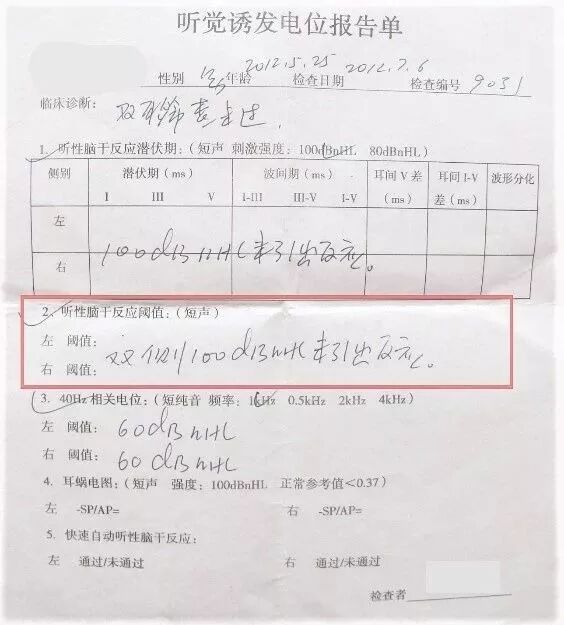 听觉诱发电位报告单
性别 年龄 2012.5.25 检查日期 2012.7.6 检查编号 9031
临床诊断: 双耳筛查未过.
1. 听性脑干反应潜伏期:(短声 刺激强度: 100dBnHL 80dBnHL)
侧别 潜伏期(ms) 波间期(ms) 耳间 V 差(ms) 耳间 I-V 差(ms) 波形分化
I III V I-III III-V I-V
左
100dBnHL未引出反应。
右
2. 听性脑干反应阈值:(短声)
左 阈值:
双侧100dBnHL未引出反应。
右 阈值:
3. 40Hz相关电位:(短纯音 频率: 1kHz 0.5kHz 2kHz 4kHz)
左 阈值: 60dBnHL
右 阈值: 60dBnHL
4. 耳蜗电图:(短声 强度: 100dBnHL 正常参考值<0.37)
左 -SP/AP= 右 -SP/AP=
5. 快速自动听性脑干反应:
左 通过/未通过 右 通过/未通过
检查者